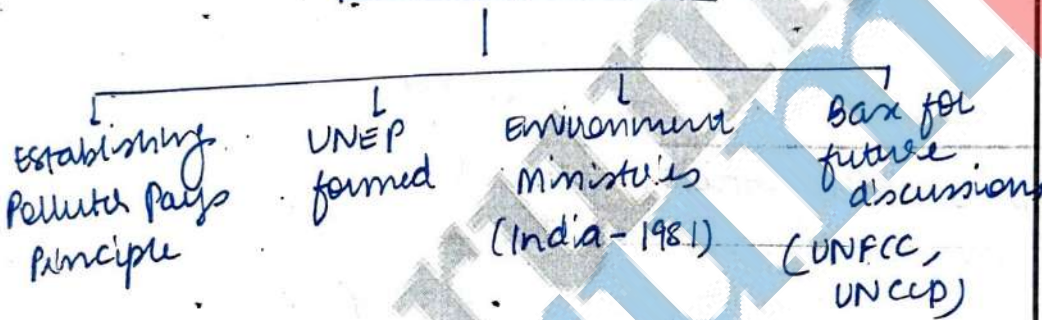 Establishing
Polluter Pays
Principle
UNEP
formed
Environment
Ministries
(India - 1981)
Base for
future
discussions
(UNFCC,
UNCCD)